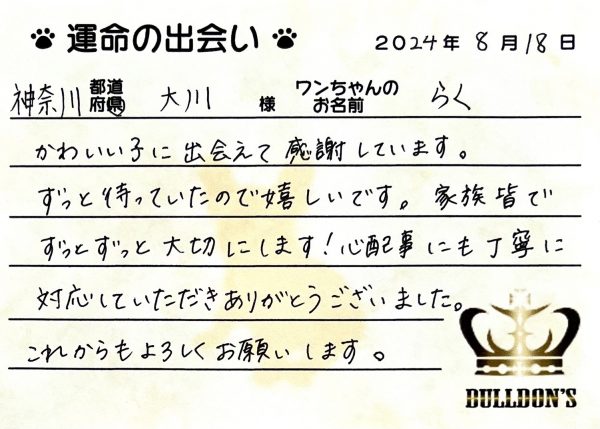 運命の出会い 2024年8月18日
神奈川 都道府県 大川 様 ワンちゃんのお名前 らく
かわいい子に出会えて感謝しています。
ずっと待っていたので嬉しいです。家族皆で
ずっとずっと大切にします！心配事にも丁寧に
対応していただきありがとうございました。
これからもよろしくお願いします。
DULLDON'S